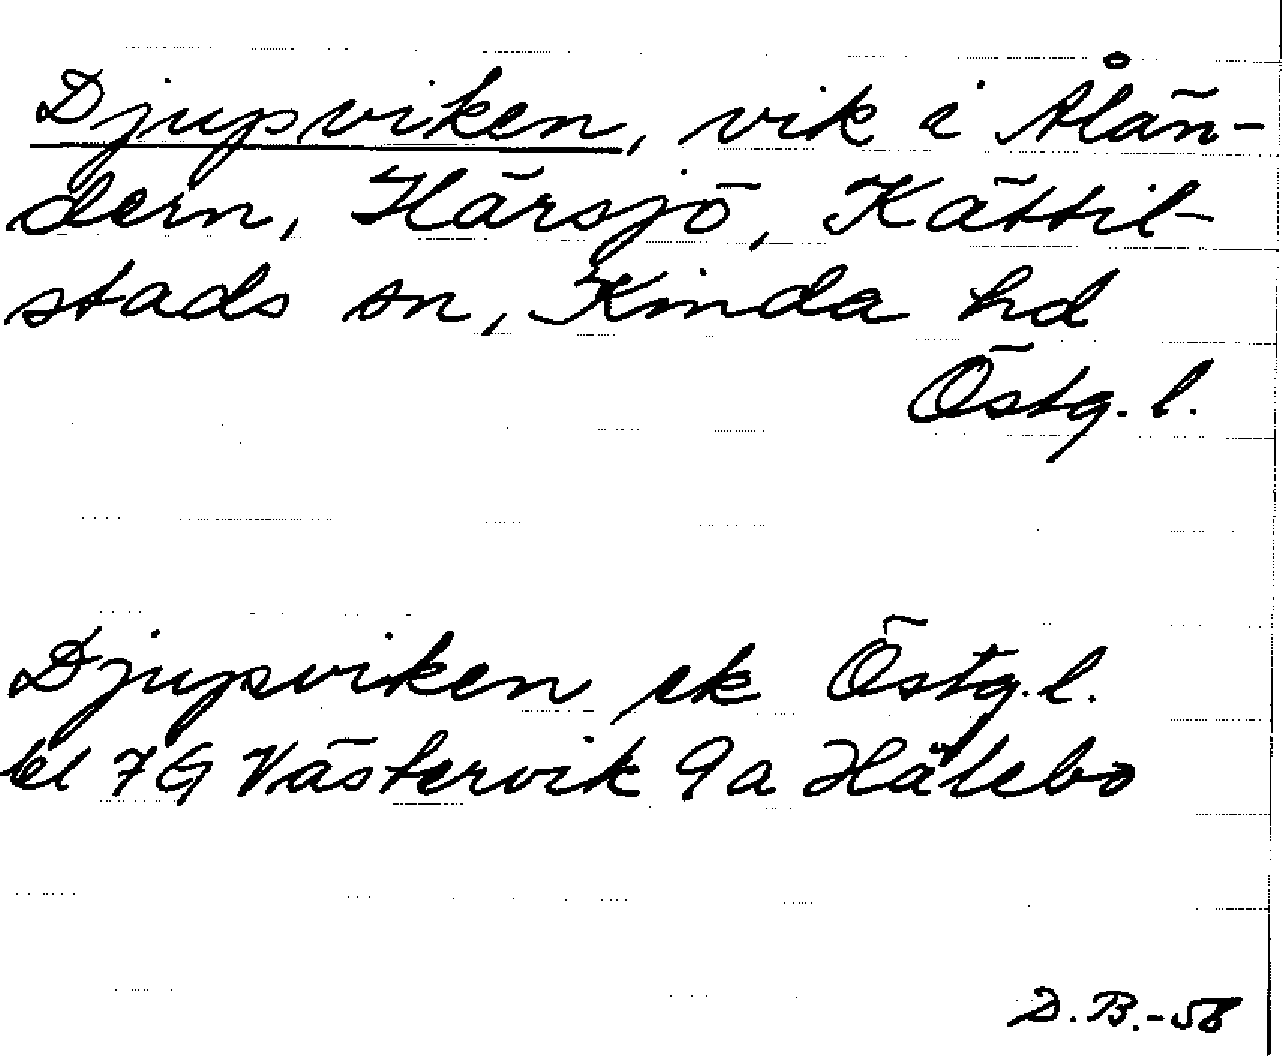 Djupsviken, vik i Ålän-
dern, Härsjö, Kättil-
stads sn, Kinda hd
Östg. l.
Djupsviken ek Östg. l.
bl 7G Västervik 9a Hälebo
D. B.-58